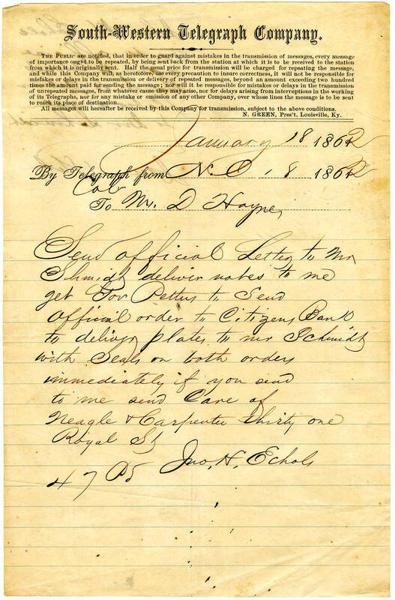 South-Western Telegraph Company.
THE PUBLIC are notified, that in order to guard against mistakes in the transmission of messages, every message
of importance ought to be repeated, by being sent back from the station at which it is to be received to the station
from which it is originally sent. Half the usual price for transmission will be charged for repeating the message,
and while this Company will, as heretofore, use every precaution to insure correctness, it will not be responsible for
mistakes or delays in the transmission or delivery of repeated messages, beyond an amount exceeding two hundred
times the amount paid for sending the message; nor will it be responsible for mistakes or delays in the transmission
of unrepeated messages, from whatever cause they may arise, nor for delays arising from interruptions in the working
of its Telegraphs, nor for any mistake or omission of any other Company, over whose lines the message is to be sent
to reach its place of destination.
All messages will hereafter be received by this Company for transmission, subject to the above conditions.
N. GREEN, Pres't, Louisville, Ky.
January 18 1862
By Telegraph from N O 18 1862
To Mr. D Hayne,
Send official Letter to Mr
Schmidt deliver notes to me
get Gov Pettus to Send
official order to Citizens Bank
to deliver plates to mr Schmidt
with Seals on both orders
immediately if you send
to me send Care of
Neagle & Carpenter thirty one
Royal St
Jno. H. Echols
47